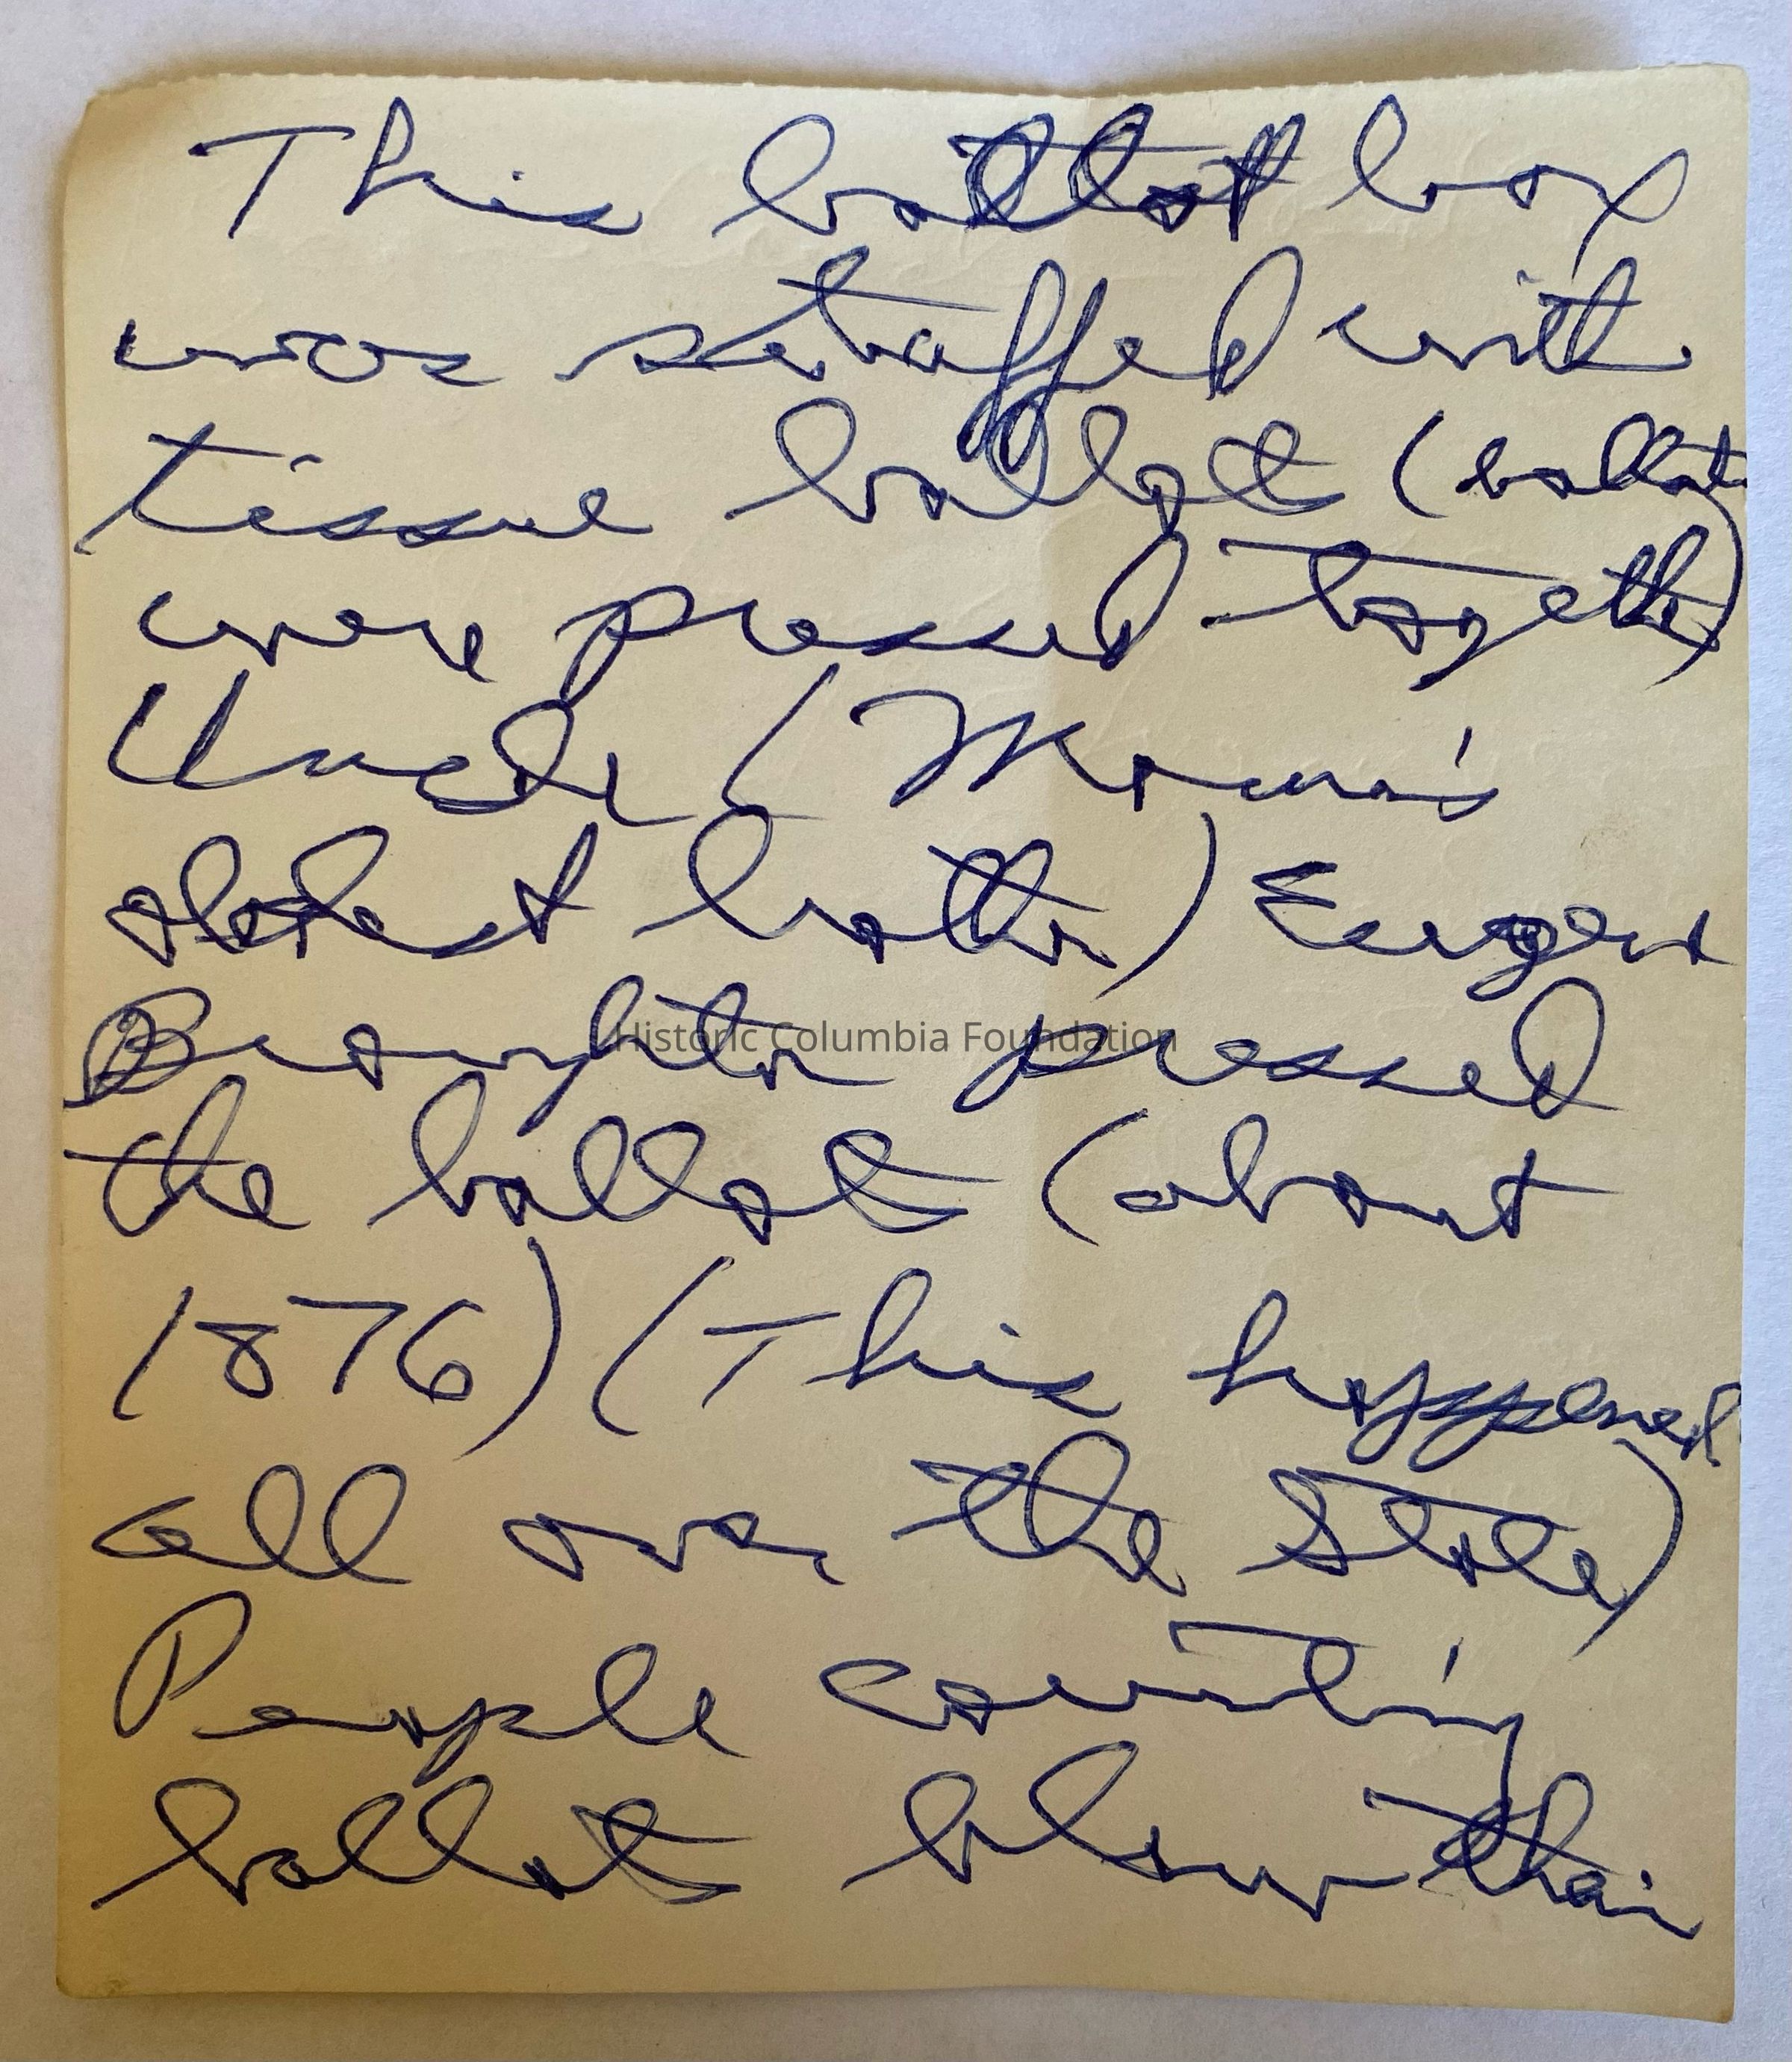 This ballot box
was stuffed with
tissue ballots (ballots
were pressed together)
Uncle (Mama's
oldest brother) Eugene
Broughton pressed
Historic Columbia Foundation
the ballots (about
1876) (This happened
all over the State)
People counting
ballots blew their